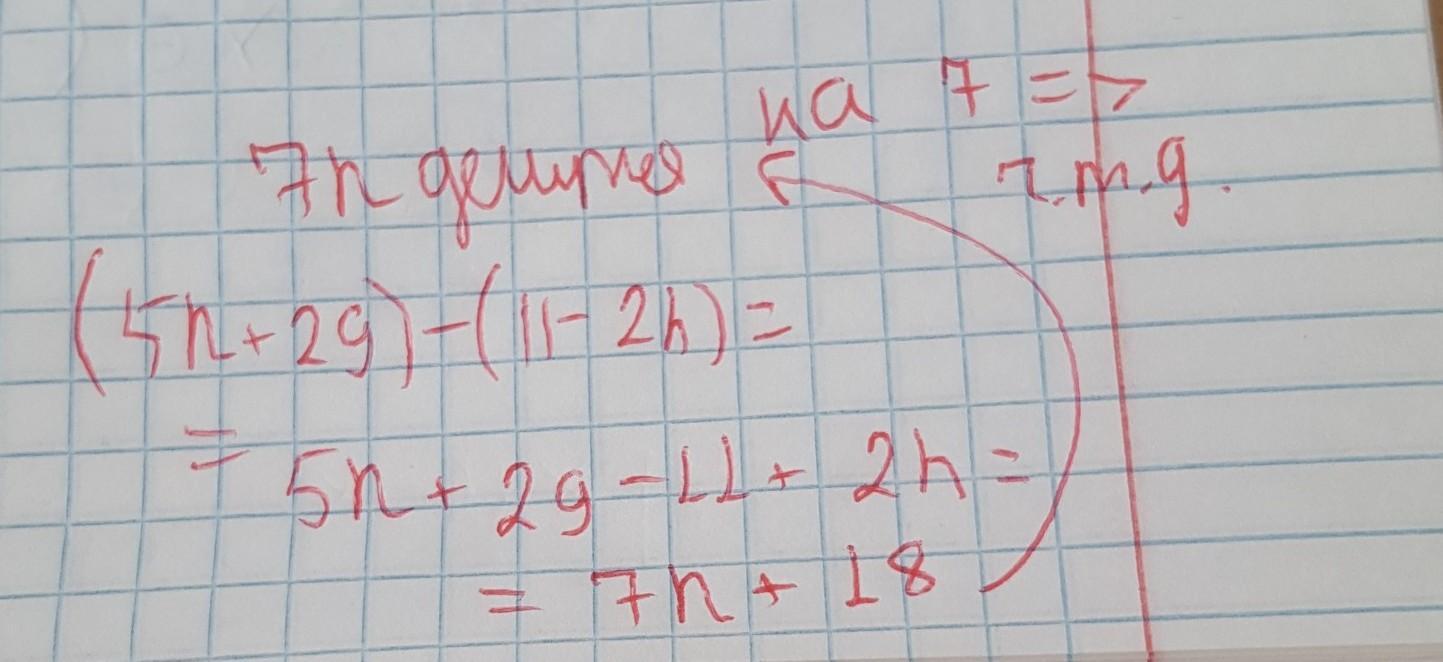 7n делится на 7 =>
ч.т.д.
(5n+29)-(11-2n)=
= 5n + 29 - 11 + 2n =
= 7n + 18